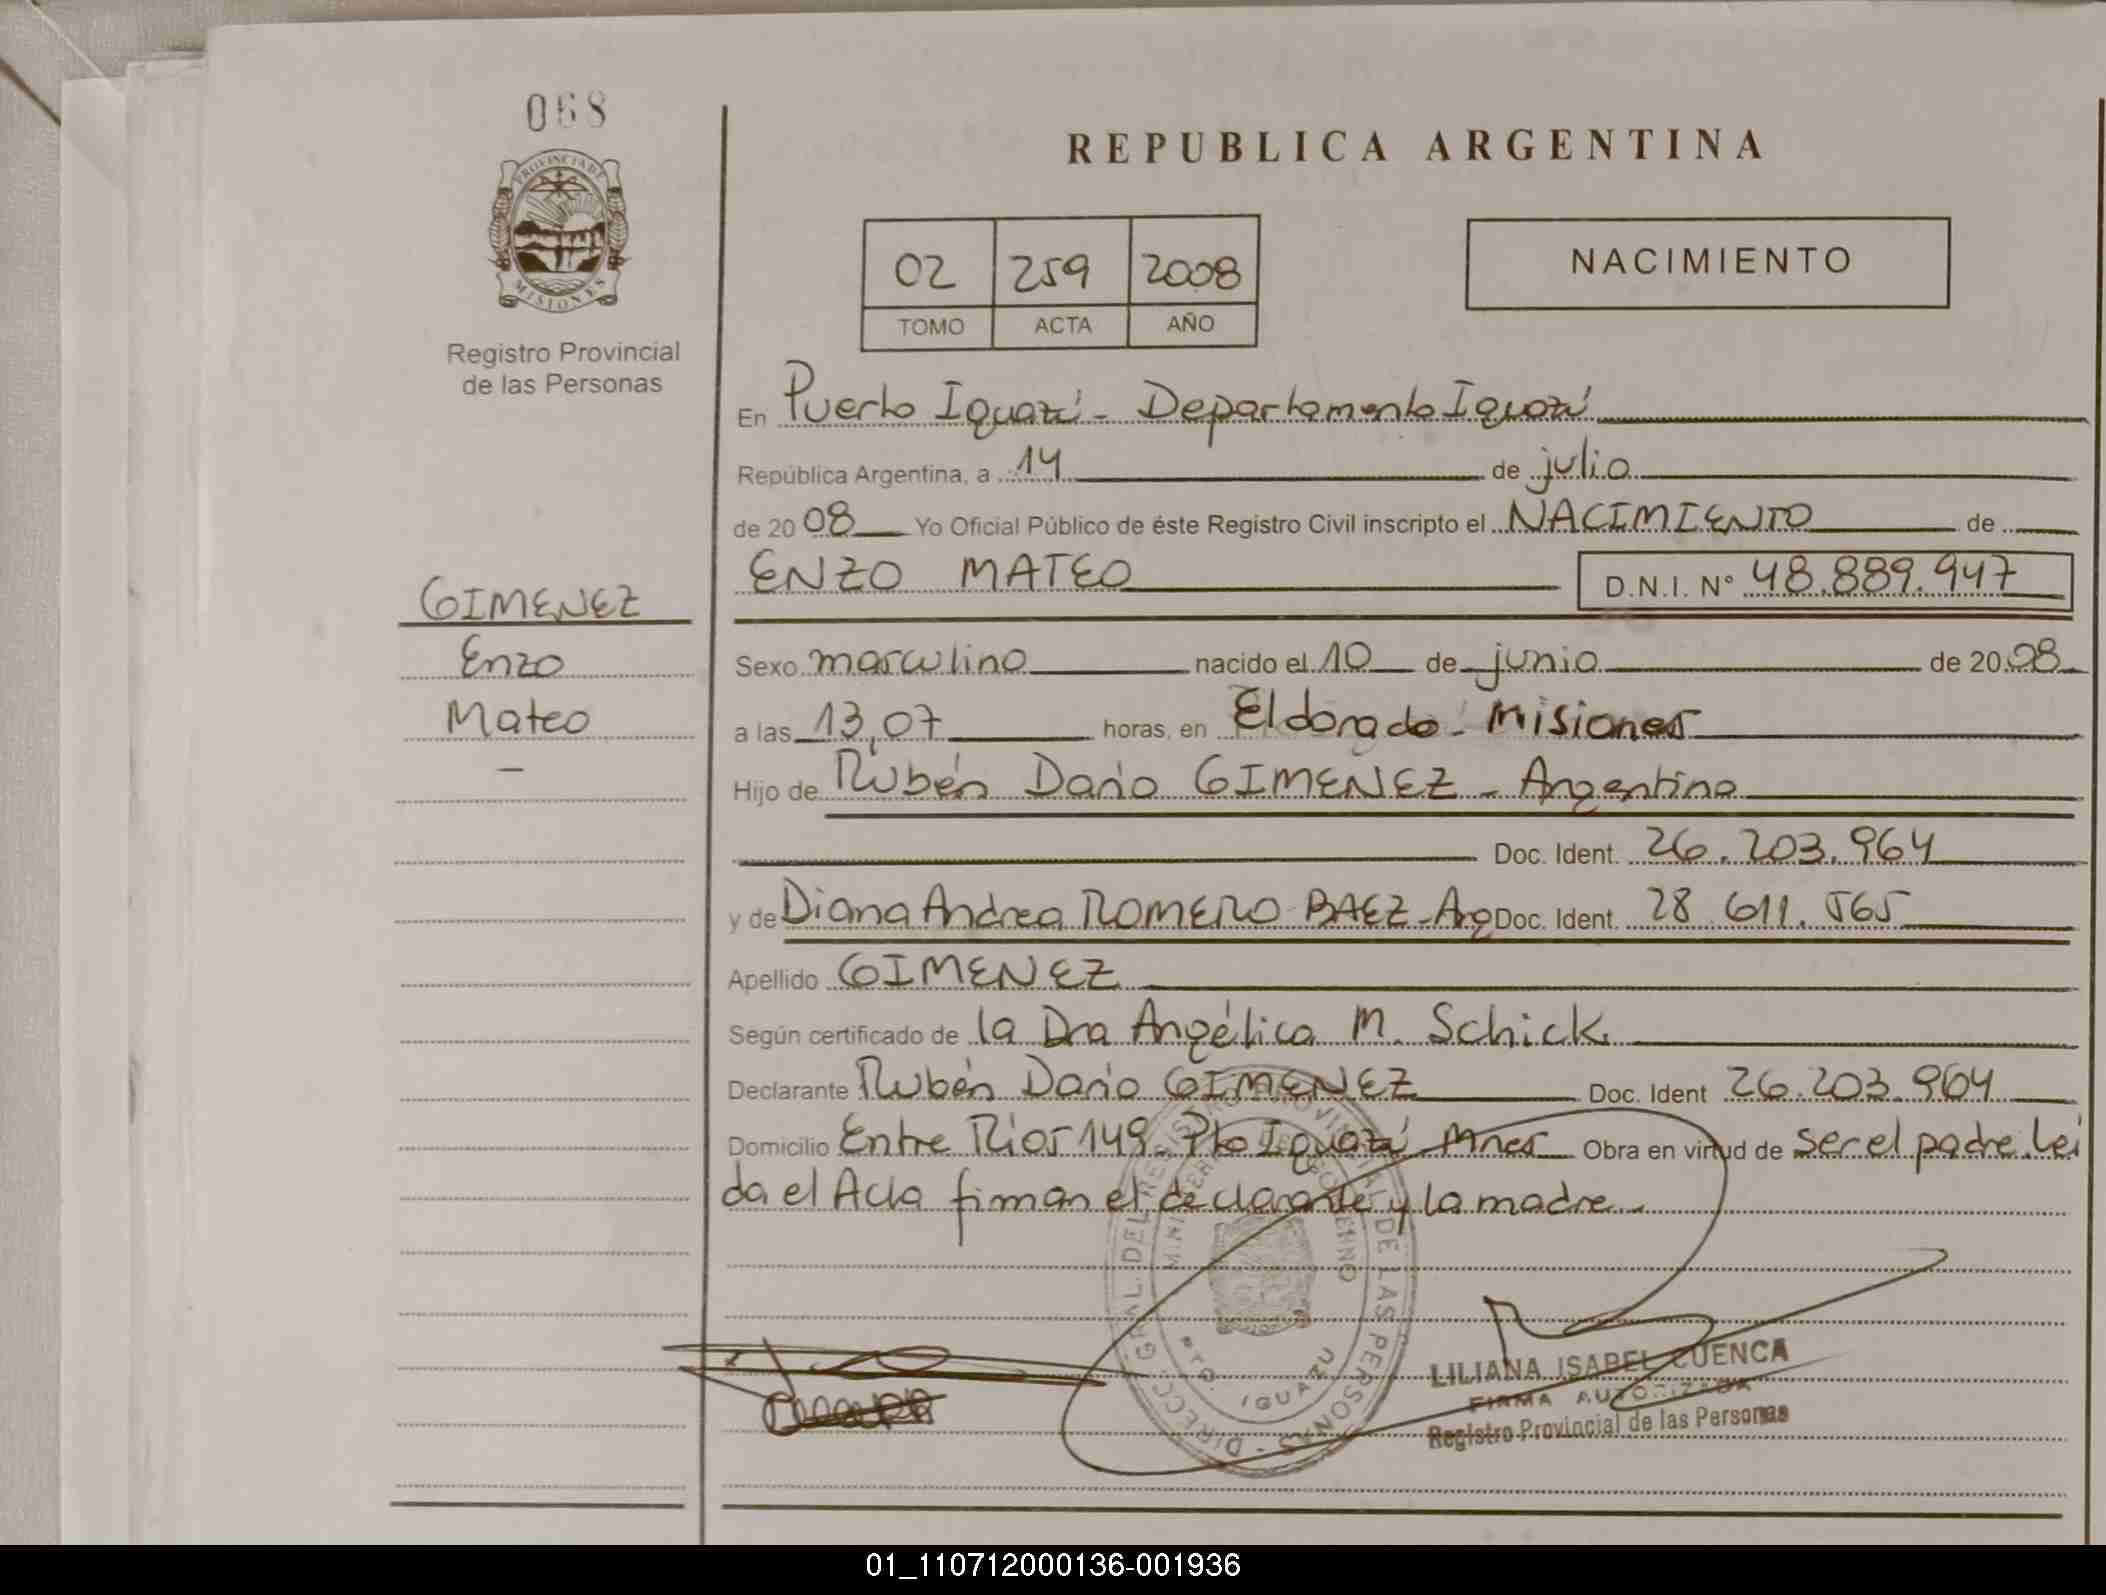 068
PROVINCIA DE
MISIONES
Registro Provincial
de las Personas
GIMENEZ
Enzo
Mateo
—
REPUBLICA ARGENTINA
02 259 2008
TOMO ACTA AÑO
NACIMIENTO
En Puerto Iguazú - Departamento Iguazú
República Argentina, a 14 de julio
de 2008 Yo Oficial Público de éste Registro Civil inscripto el NACIMIENTO de
ENZO MATEO D.N.I. N° 48.889.947
Sexo masculino nacido el 10 de junio de 2008
a las 13,07 horas, en Eldorado - Misiones
Hijo de Rubén Darío GIMENEZ - Argentino
Doc. Ident. 26.203.964
y de Diana Andrea ROMERO BAEZ - Arg Doc. Ident. 28.611.565
Apellido GIMENEZ
Según certificado de la Dra Angélica M. Schick
Declarante Rubén Darío GIMENEZ Doc. Ident 26.203.964
Domicilio Entre Ríos 149 - Pto Iguazú Mnes Obra en virtud de ser el padre. Leí
da el Acta firman el declarante y la madre.
DIRECC. GRAL. DEL REGISTRO PROVINCIAL DE LAS PERSONAS -
PTO. IGUAZU
LILIANA ISABEL CUENCA
FIRMA AUTORIZADA
Registro Provincial de las Personas
01_110712000136-001936